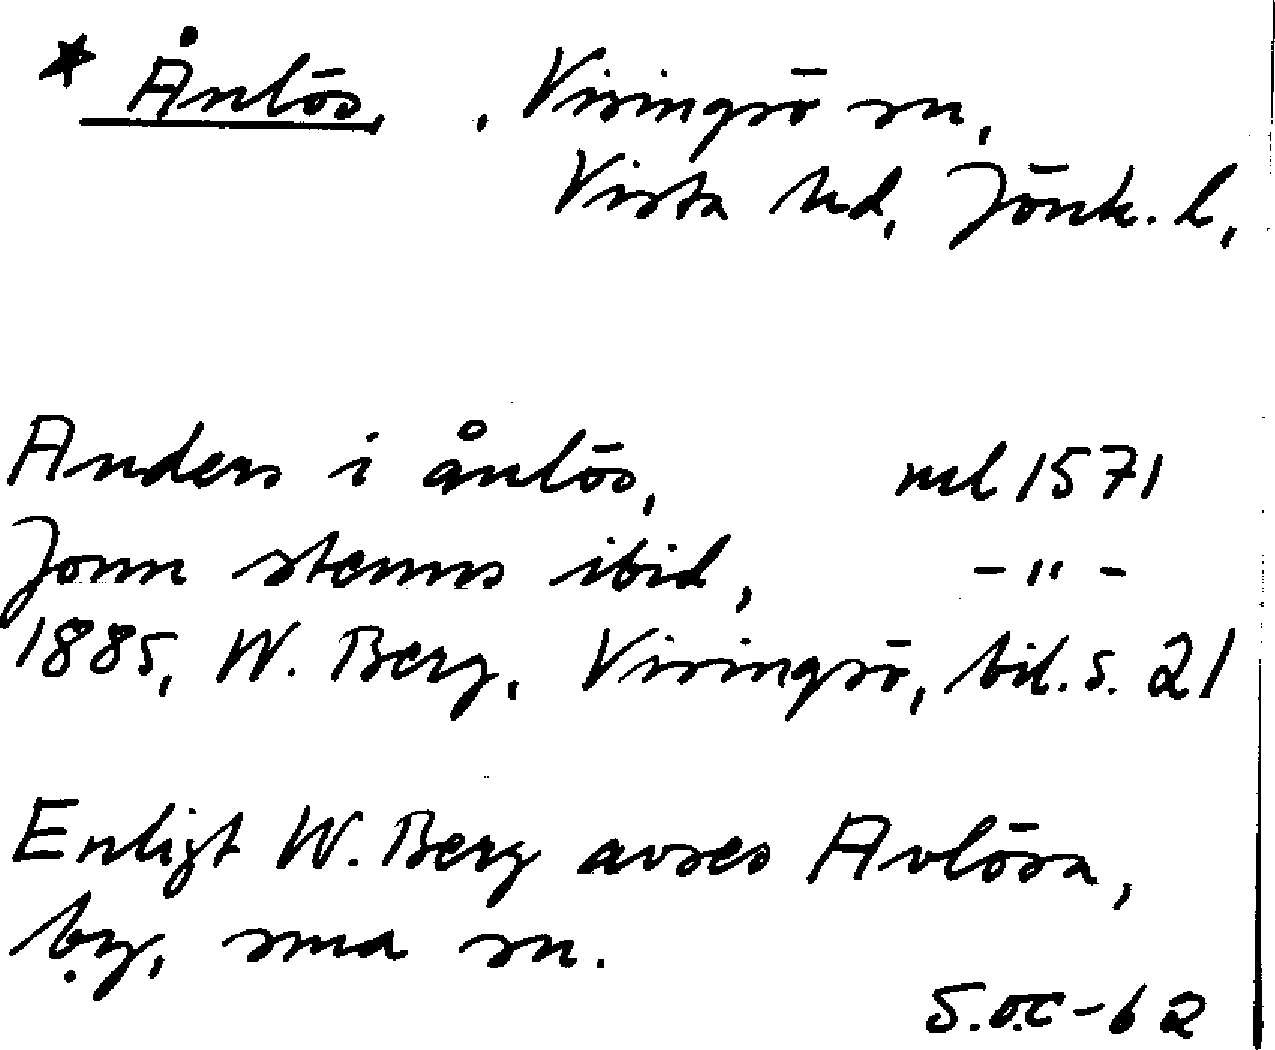 * Ånlös, , Visingsö sn,
Vista hd, Jönk. l,
Anders i ånlös, ml 1571
Jonn stenns ibid, -"-
1885, W. Berg, Visingsö, bil. s. 21
Enligt W. Berg avses Avlösa,
by, sma sn.
S.O.C-62